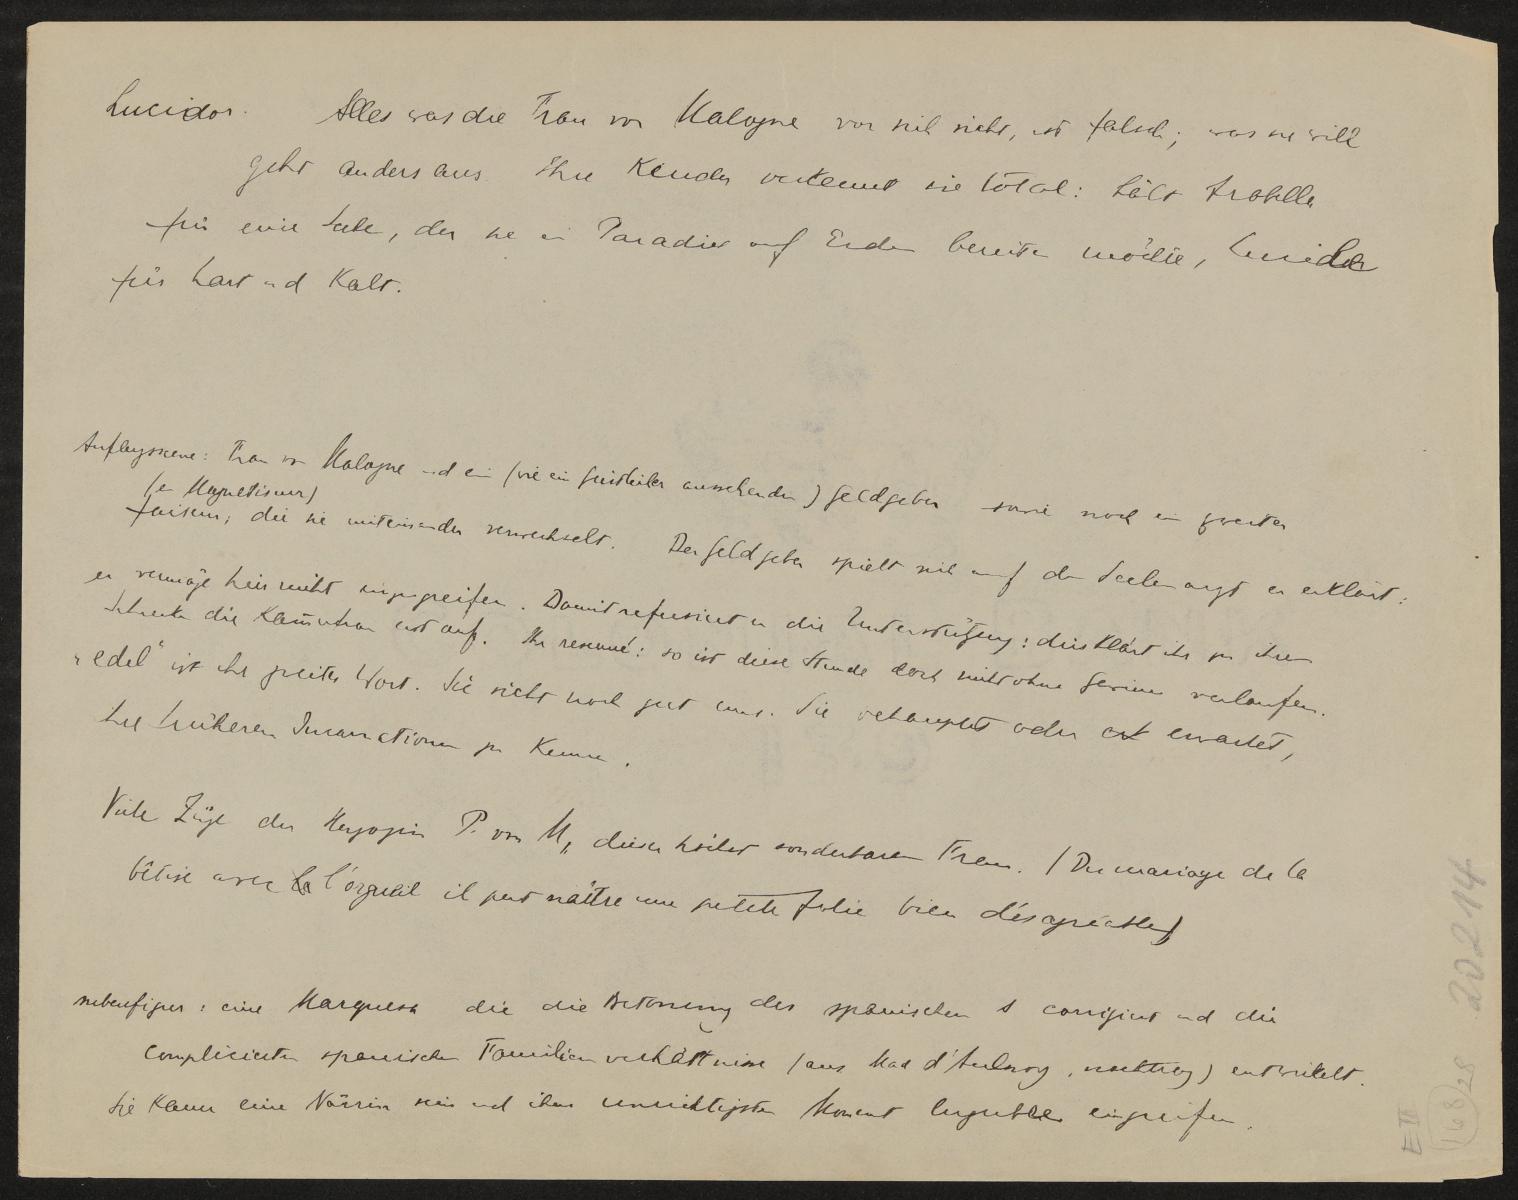 Lucidor. Alles was die Frau von Malogne vor sich sieht, ist falsch; was sie will
geht anders aus. Ihre Kinder verkennt sie total: hält Arabella
für eine Seele, der sie ein Paradies auf Erden bereiten möchte, Lucidor
für hart und kalt.
Anfangsscene: Frau von Malogne und ein (wie ein Geistlicher aussehender) Geldgeber sowie noch ein zweiter
(ein Magnetiseur)
die sie miteinander verwechselt. Der Geldgeber spielt sich auf den Seelenarzt er erklärt:
er vermöge hier nicht einzugreifen. Damit refusiert er die Unterstützung: dies klärt ihr zu ihrem
Schrecken die Kammerfrau erst auf. Ihr resumé: so ist diese Stunde doch nicht ohne Gewinn verlaufen.
„edel" ist ihr zweites Wort. Sie sieht noch gut aus. Sie behauptet oder erwartet,
ihre früheren Incarnationen zu kennen.
Viele Züge der Herzogin P. von M, dieser höchst sonderbaren Frau. (Du mariage de la
bêtise avec l'orgueil il peut naître une petite folie bien désagréable)
nebenfigur: eine Marquesa die die Betonung des spanischen s corrigiert und die
complicierten spanischen Familienverhältnisse (aus Mad d'Aulnoy, ) entwickelt.
Sie kann eine Närrin sein und im unrichtigsten Moment eingreifen.
20214
E II
168 28